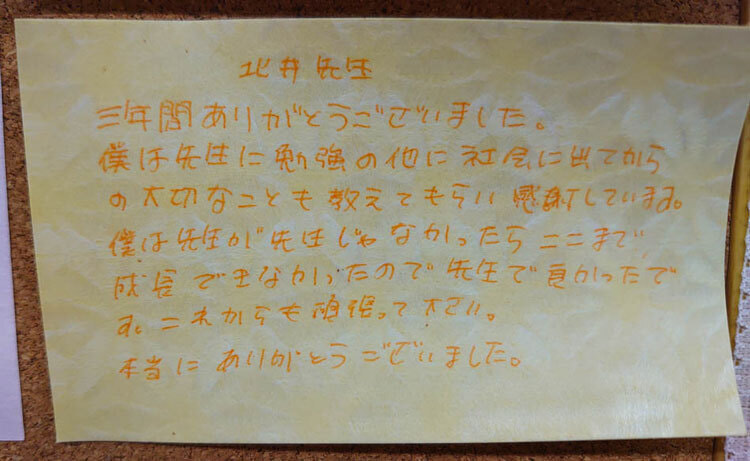 北井先生
三年間ありがとうございました。
僕は先生に勉強の他に社会に出てから
の大切なことも教えてもらい感謝しています。
僕は先生が先生じゃなかったらここまで
成長できなかったので先生で良かったで
す。これからも頑張って下さい。
本当にありがとうございました。